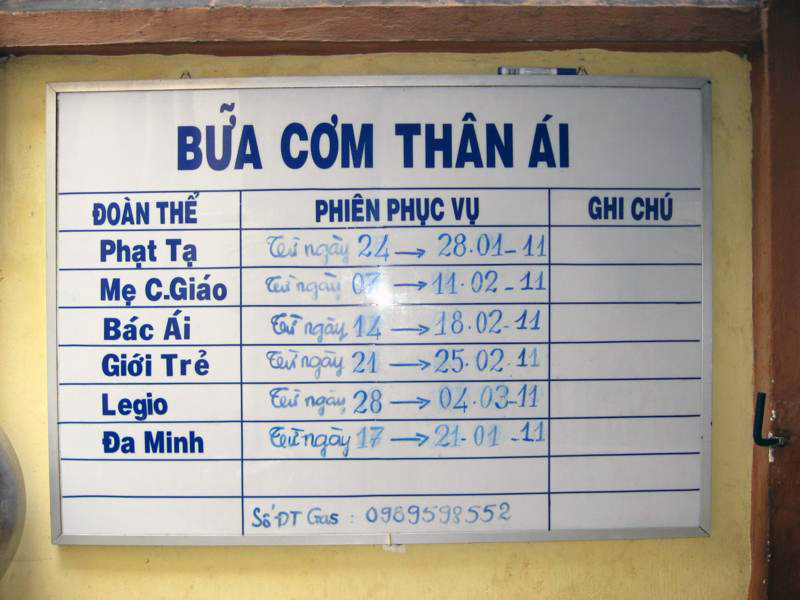 BỮA CƠM THÂN ÁI
ĐOÀN THỂ PHIÊN PHỤC VỤ GHI CHÚ
Phạt Tạ Từ ngày 24 → 28.01-11
Mẹ C.Giáo Từ ngày 07 → 11.02-11
Bác Ái Từ ngày 14 → 18.02-11
Giới Trẻ Từ ngày 21 → 25.02.11
Legio Từ ngày 28 → 04.03-11
Đa Minh Từ ngày 17 → 21-01-11
Số ĐT Gas : 0989598552